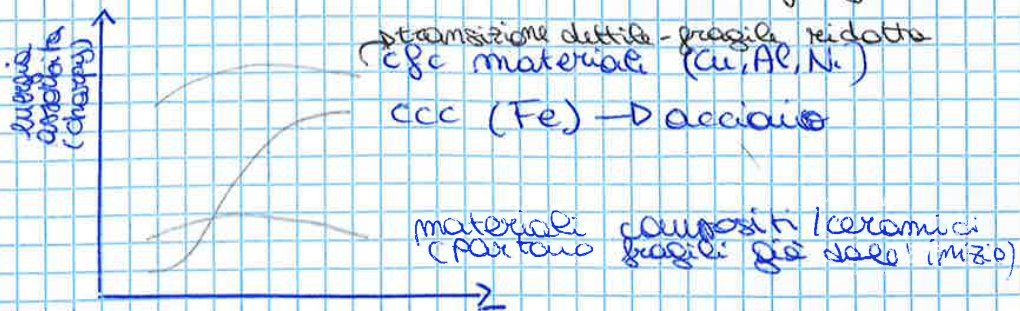 energia
assorbita
(charpy)
transizione duttile-fragile ridotta
cfc materiali (Cu, Al, Ni)
CCC (Fe) → acciaio
materiali compositi/ceramici
(partono fragili già dall'inizio)